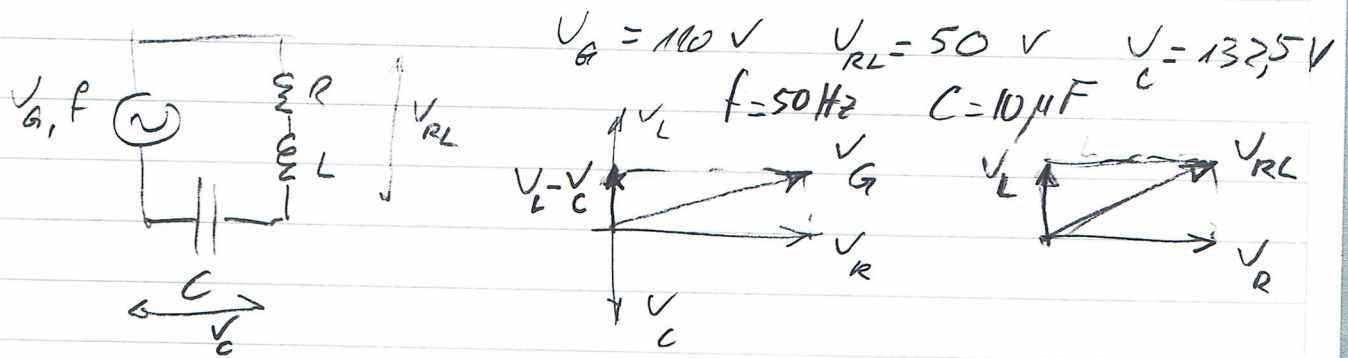 V_G = 110 V V_RL = 50 V V_C = 132,5 V
f = 50 Hz C = 10 μF
V_G, f
R
L
V_RL
C
V_C
V_L
V_L - V_C
V_G
V_R
V_C
V_L
V_RL
V_R